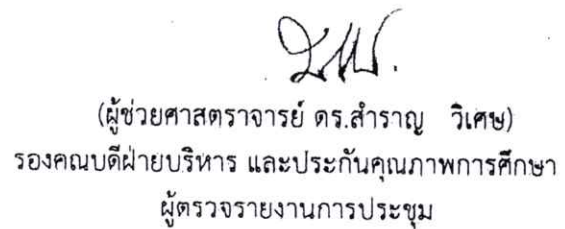 (ผู้ช่วยศาสตราจารย์ ดร.สำราญ วิเศษ)
รองคณบดีฝ่ายบริหาร และประกันคุณภาพการศึกษา
ผู้ตรวจรายงานการประชุม